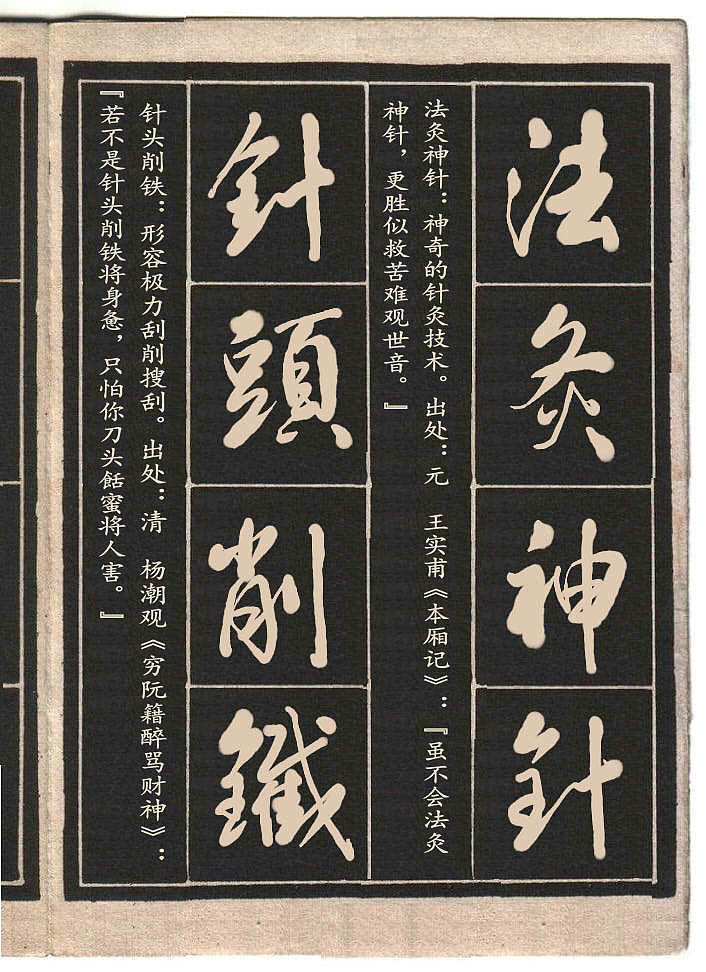 法灸神针
法灸神针：神奇的针灸技术。出处：元　王实甫《本厢记》：『虽不会法灸
神针，更胜似救苦难观世音。』
針頭削鐵
针头削铁：形容极力刮削搜刮。出处：清　杨潮观《穷阮籍醉骂财神》：
『若不是针头削铁将身惫，只怕你刀头餂蜜将人害。』